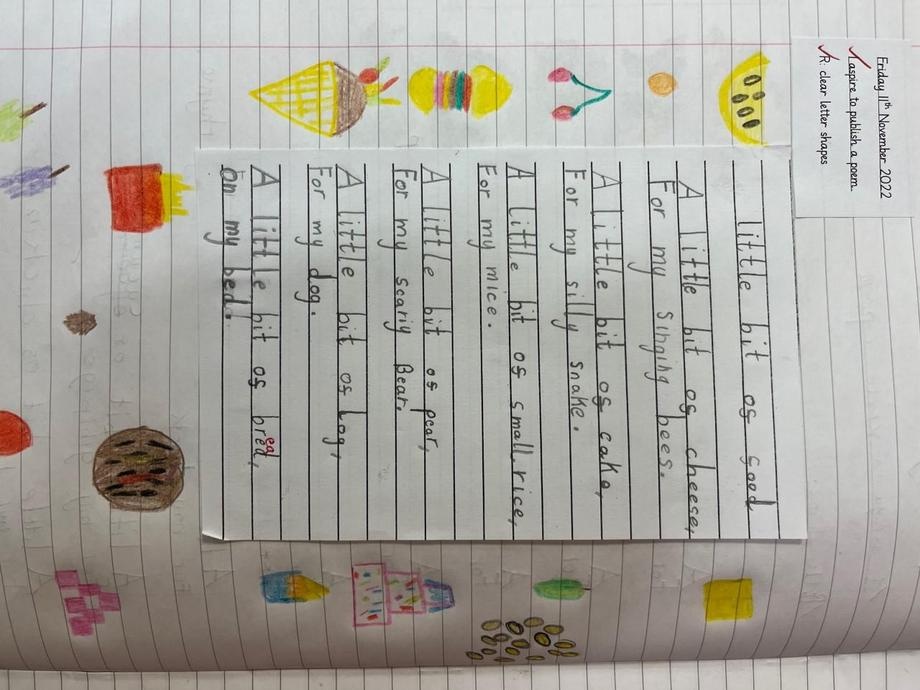 Friday 11th November 2022
I aspire to publish a poem.
R: clear letter shapes
little bit of food
A little bit of cheese,
For my singing bees.
A little bit of cake,
For my silly snake.
A little bit of small rice,
For my mice.
A little bit of pear,
For my scariy Bear.
A little bit of hog,
For my dog.
A little bit of bread,
On my bed.